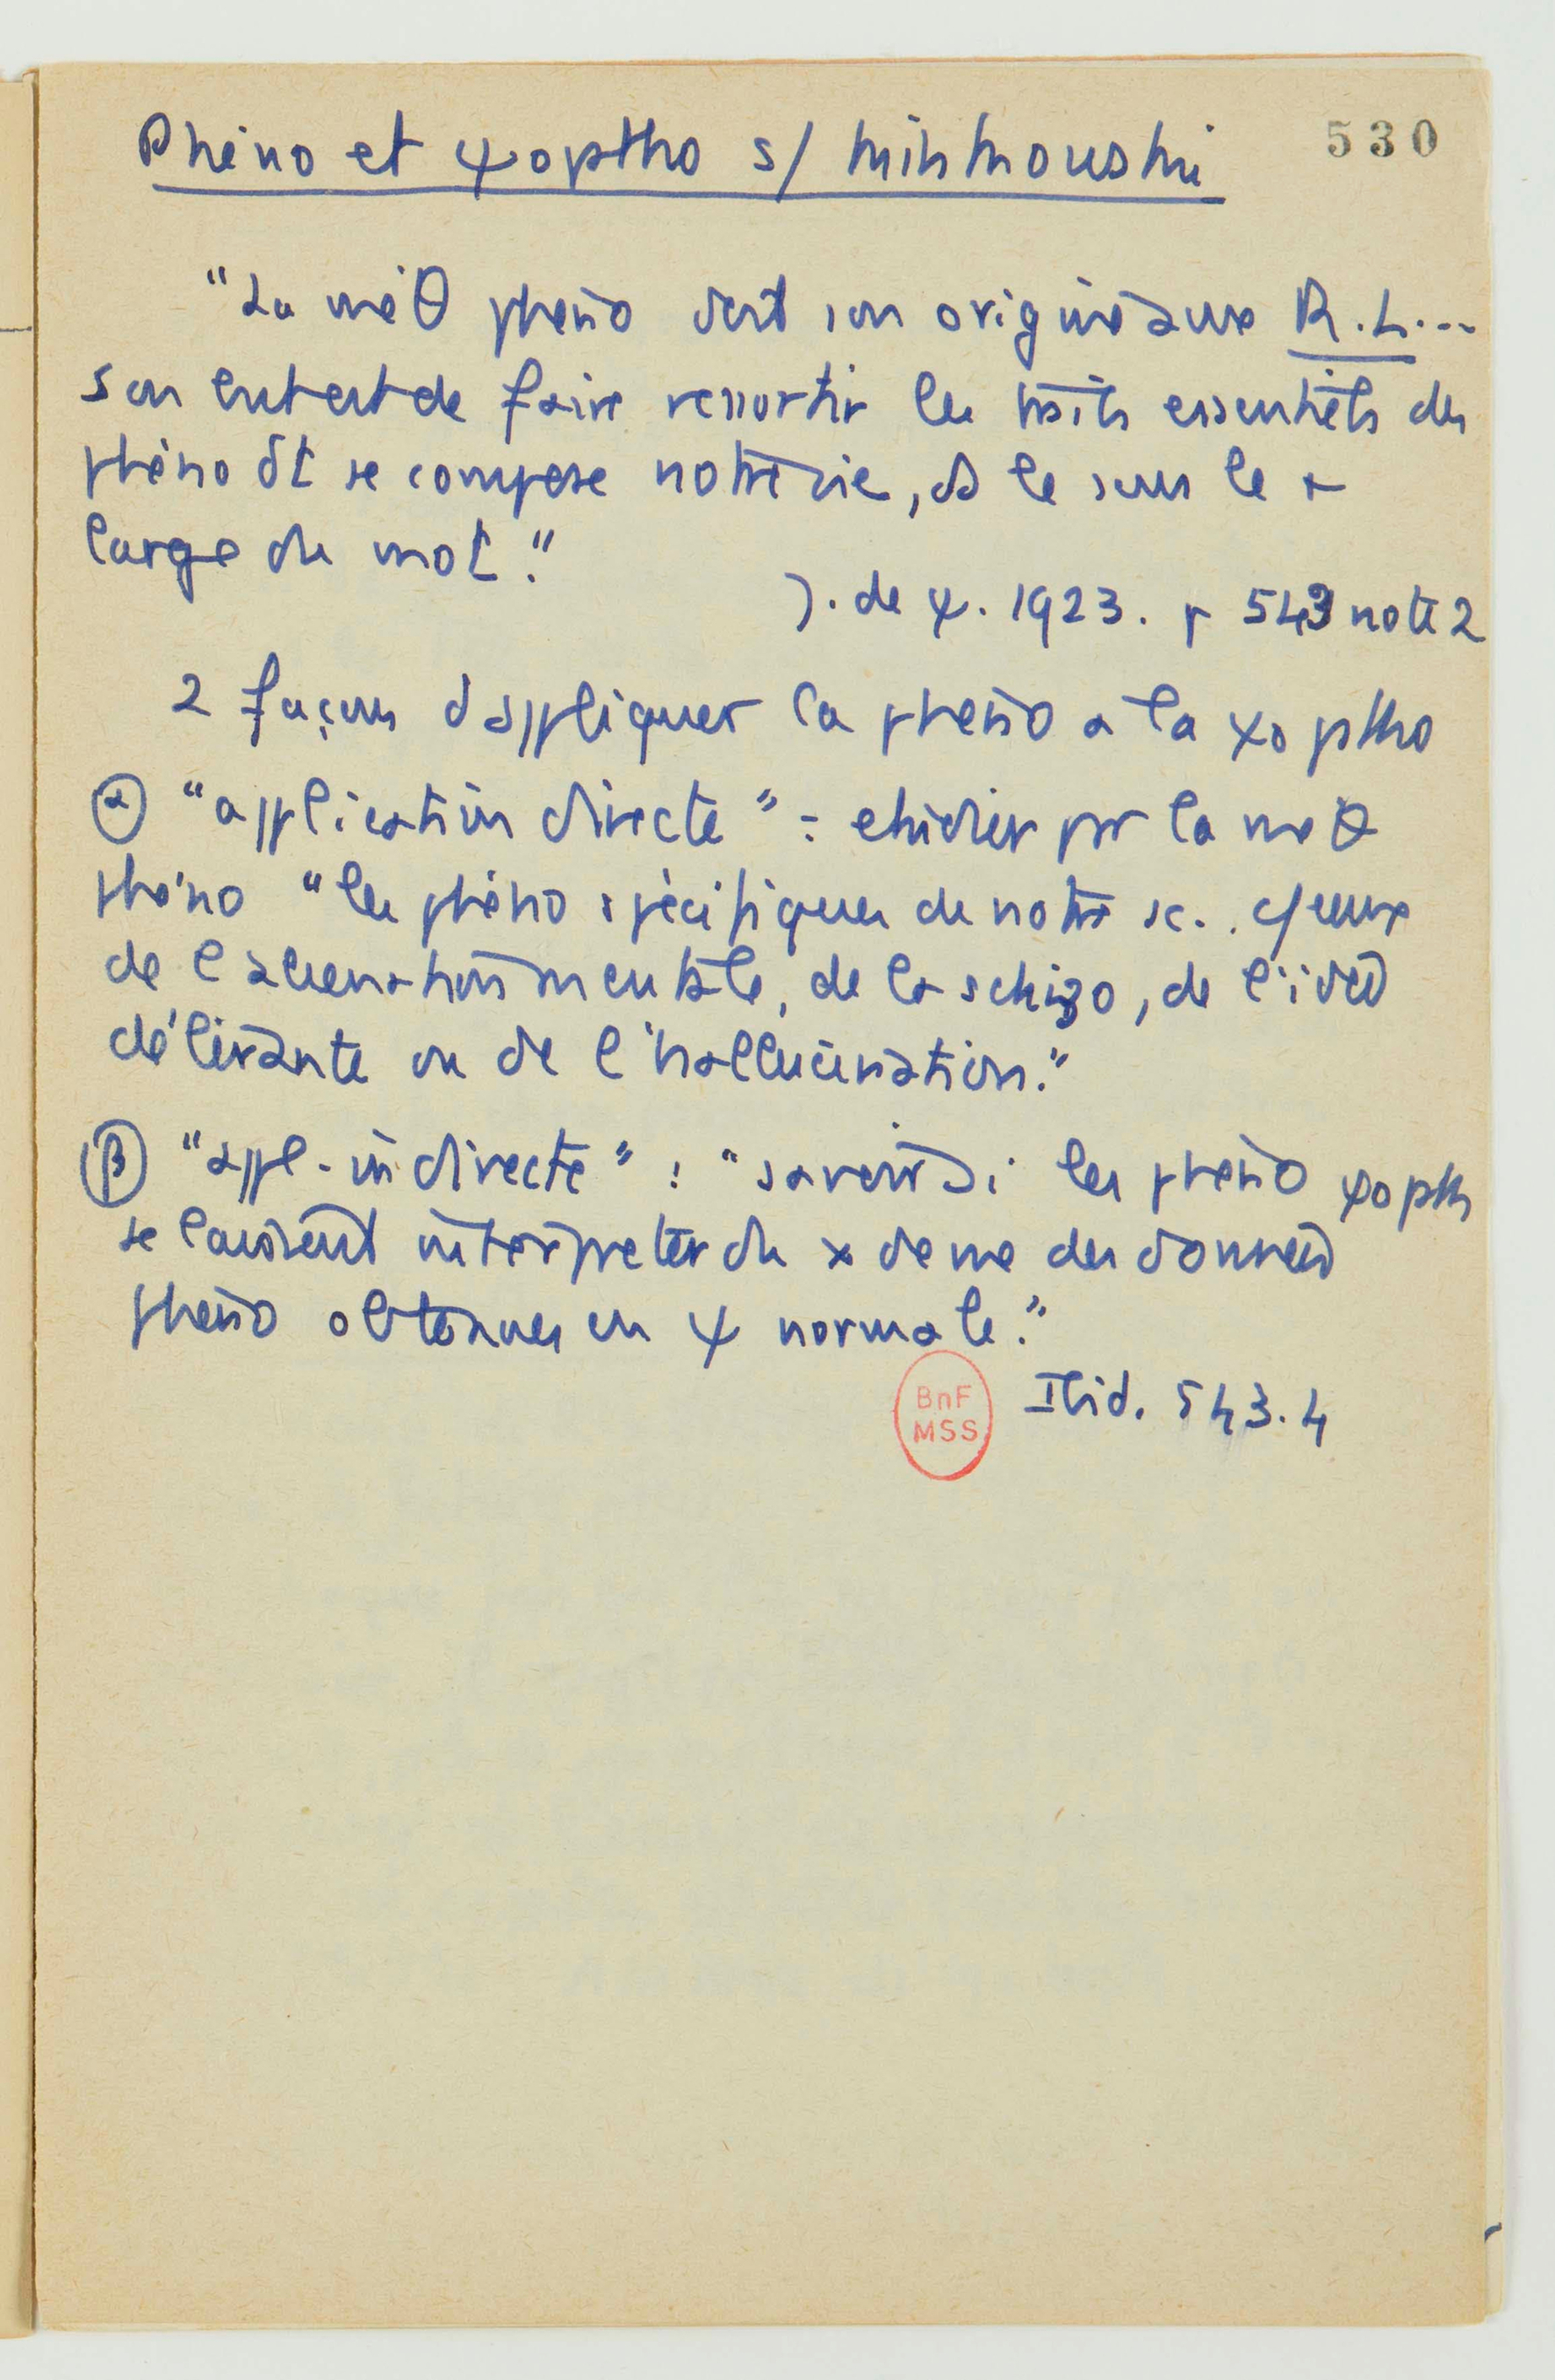 530
Phéno et ψoptho s/ Minkowski
"La méθ phéno doit son origine aux R.L...
Son but est de faire ressortir les traits essentiels des
phéno dt se compose notre vie, ds le sens le +
large du mot."
J. de ψ. 1923. p 543 note 2
2 façons d'appliquer la phéno à la ψo ptho
α "application directe" : etudier par la meθ
phéno "les phéno spécifiques de notre sc.. c/ ceux
de l'alienation mentale, de la schizo, de l'idée
délirante ou de l'hallucination."
β "appl. indirecte" : "savoir si les phéno ψo pth
se laissent interpreter du x de vue des données
phéno obtenues en ψ normale."
Ibid. 543.4
BnF
MSS